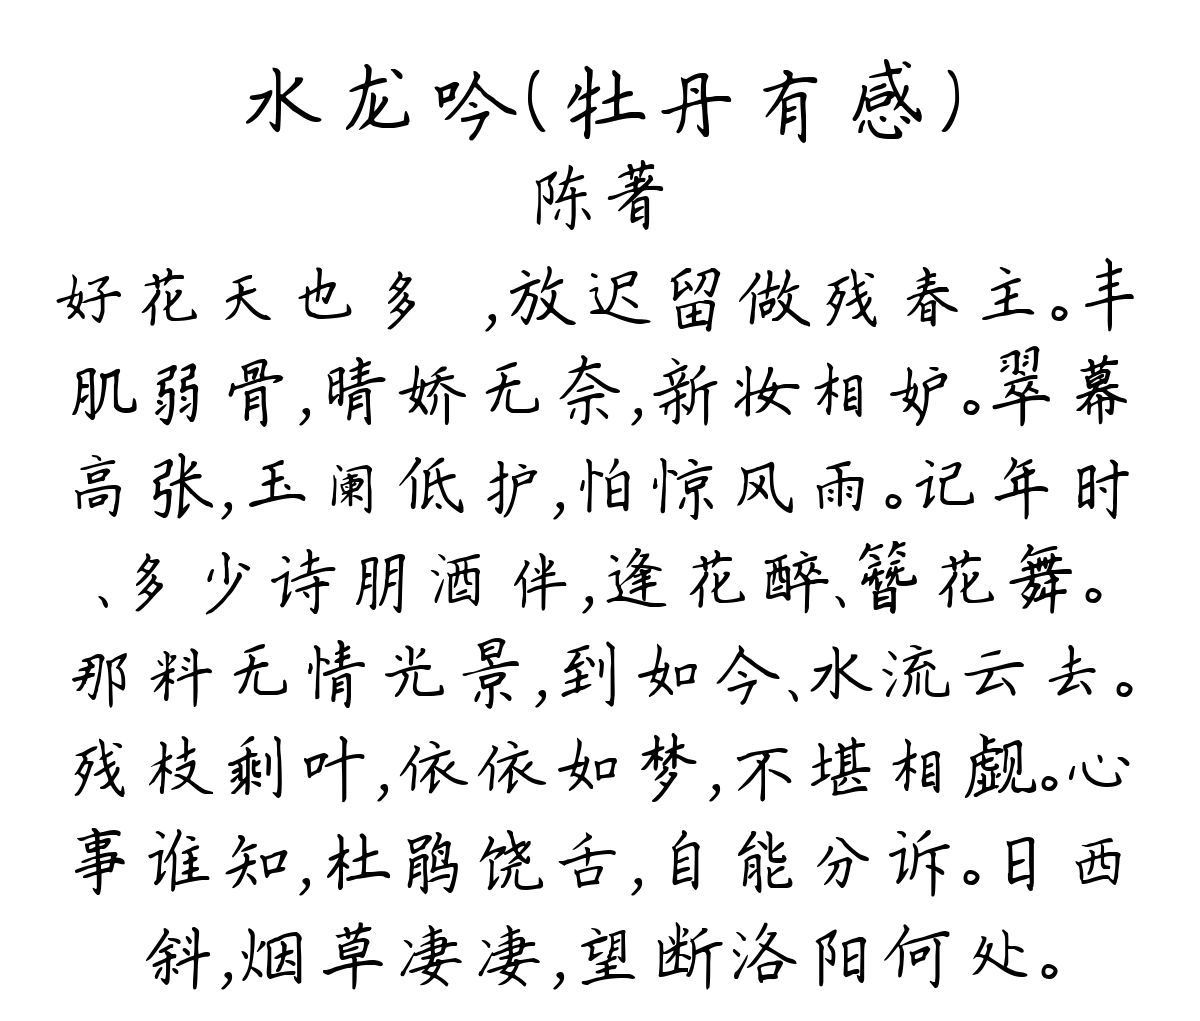 水龙吟(牡丹有感)
陈著
好花天也多,放迟留做残春主。丰
肌弱骨,晴娇无奈,新妆相妒。翠幕
高张,玉阑低护,怕惊风雨。记年时
、多少诗朋酒伴,逢花醉、簪花舞。
那料无情光景,到如今、水流云去。
残枝剩叶,依依如梦,不堪相觑。心
事谁知,杜鹃饶舌,自能分诉。日西
斜,烟草凄凄,望断洛阳何处。